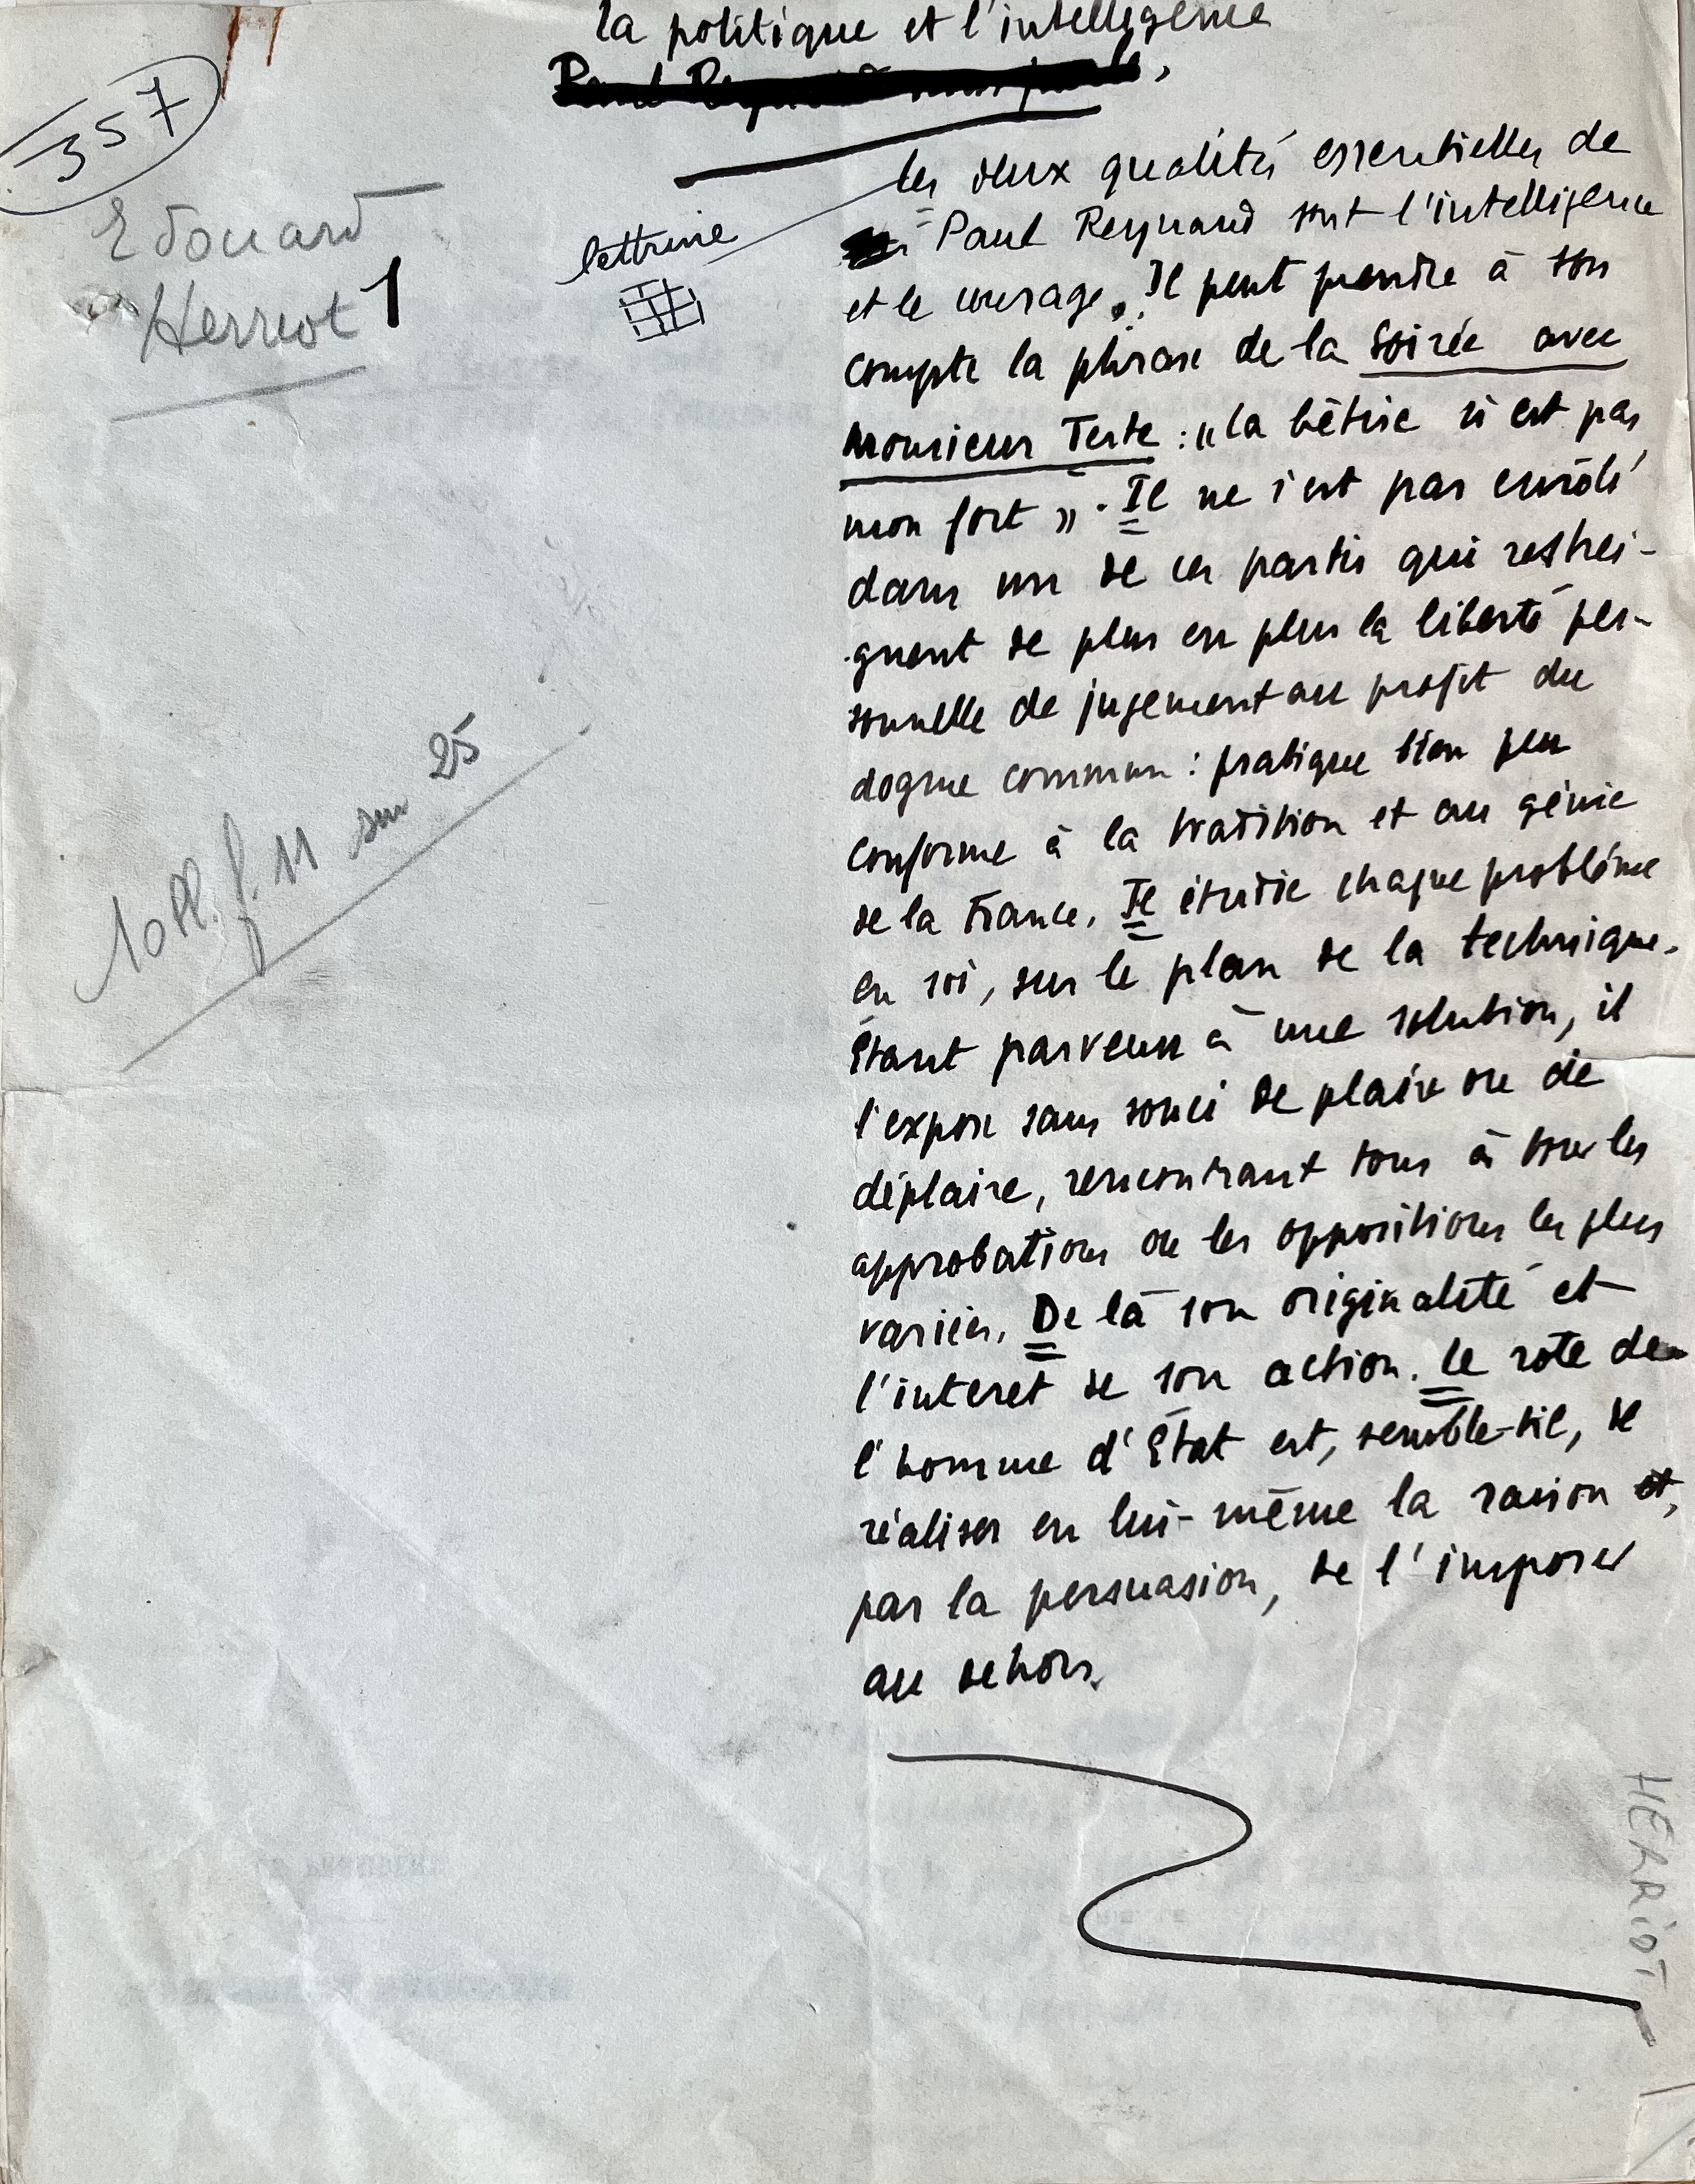 la politique et l'intelligence
Paul Reynaud
357
Edouard
Herriot 1
lettrine
les deux qualités essentielles de
M. Paul Reynaud sont l'intelligence
et le courage. Il peut prendre à son
compte la phrase de la Soirée avec
Monsieur Teste : "La bêtise n'est pas
mon fort". Il ne s'est pas enrôlé
dans un de ces partis qui restrei-
gnent de plus en plus la liberté per-
sonnelle de jugement au profit du
dogme commun : pratique bien peu
conforme à la tradition et au génie
de la France. Il étudie chaque problème
en soi, sur le plan de la technique.
Étant parvenu à une solution, il
l'expose sans souci de plaire ou de
déplaire, rencontrant tour à tour les
approbations ou les oppositions les plus
variées. De là son originalité et
l'interet de son action. Le role de
l'homme d'État est, semble-t-il, de
réaliser en lui-même la raison et,
par la persuasion, de l'imposer
au dehors.
sur 25
HERRIOT